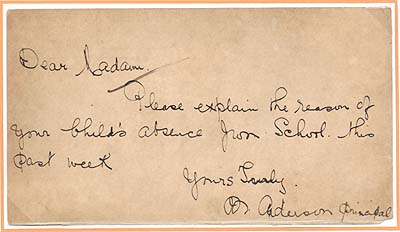 Dear Madam.
Please explain the reason of
your Child's absence from School. this
past week
Yours Truly.
M. Anderson Principal